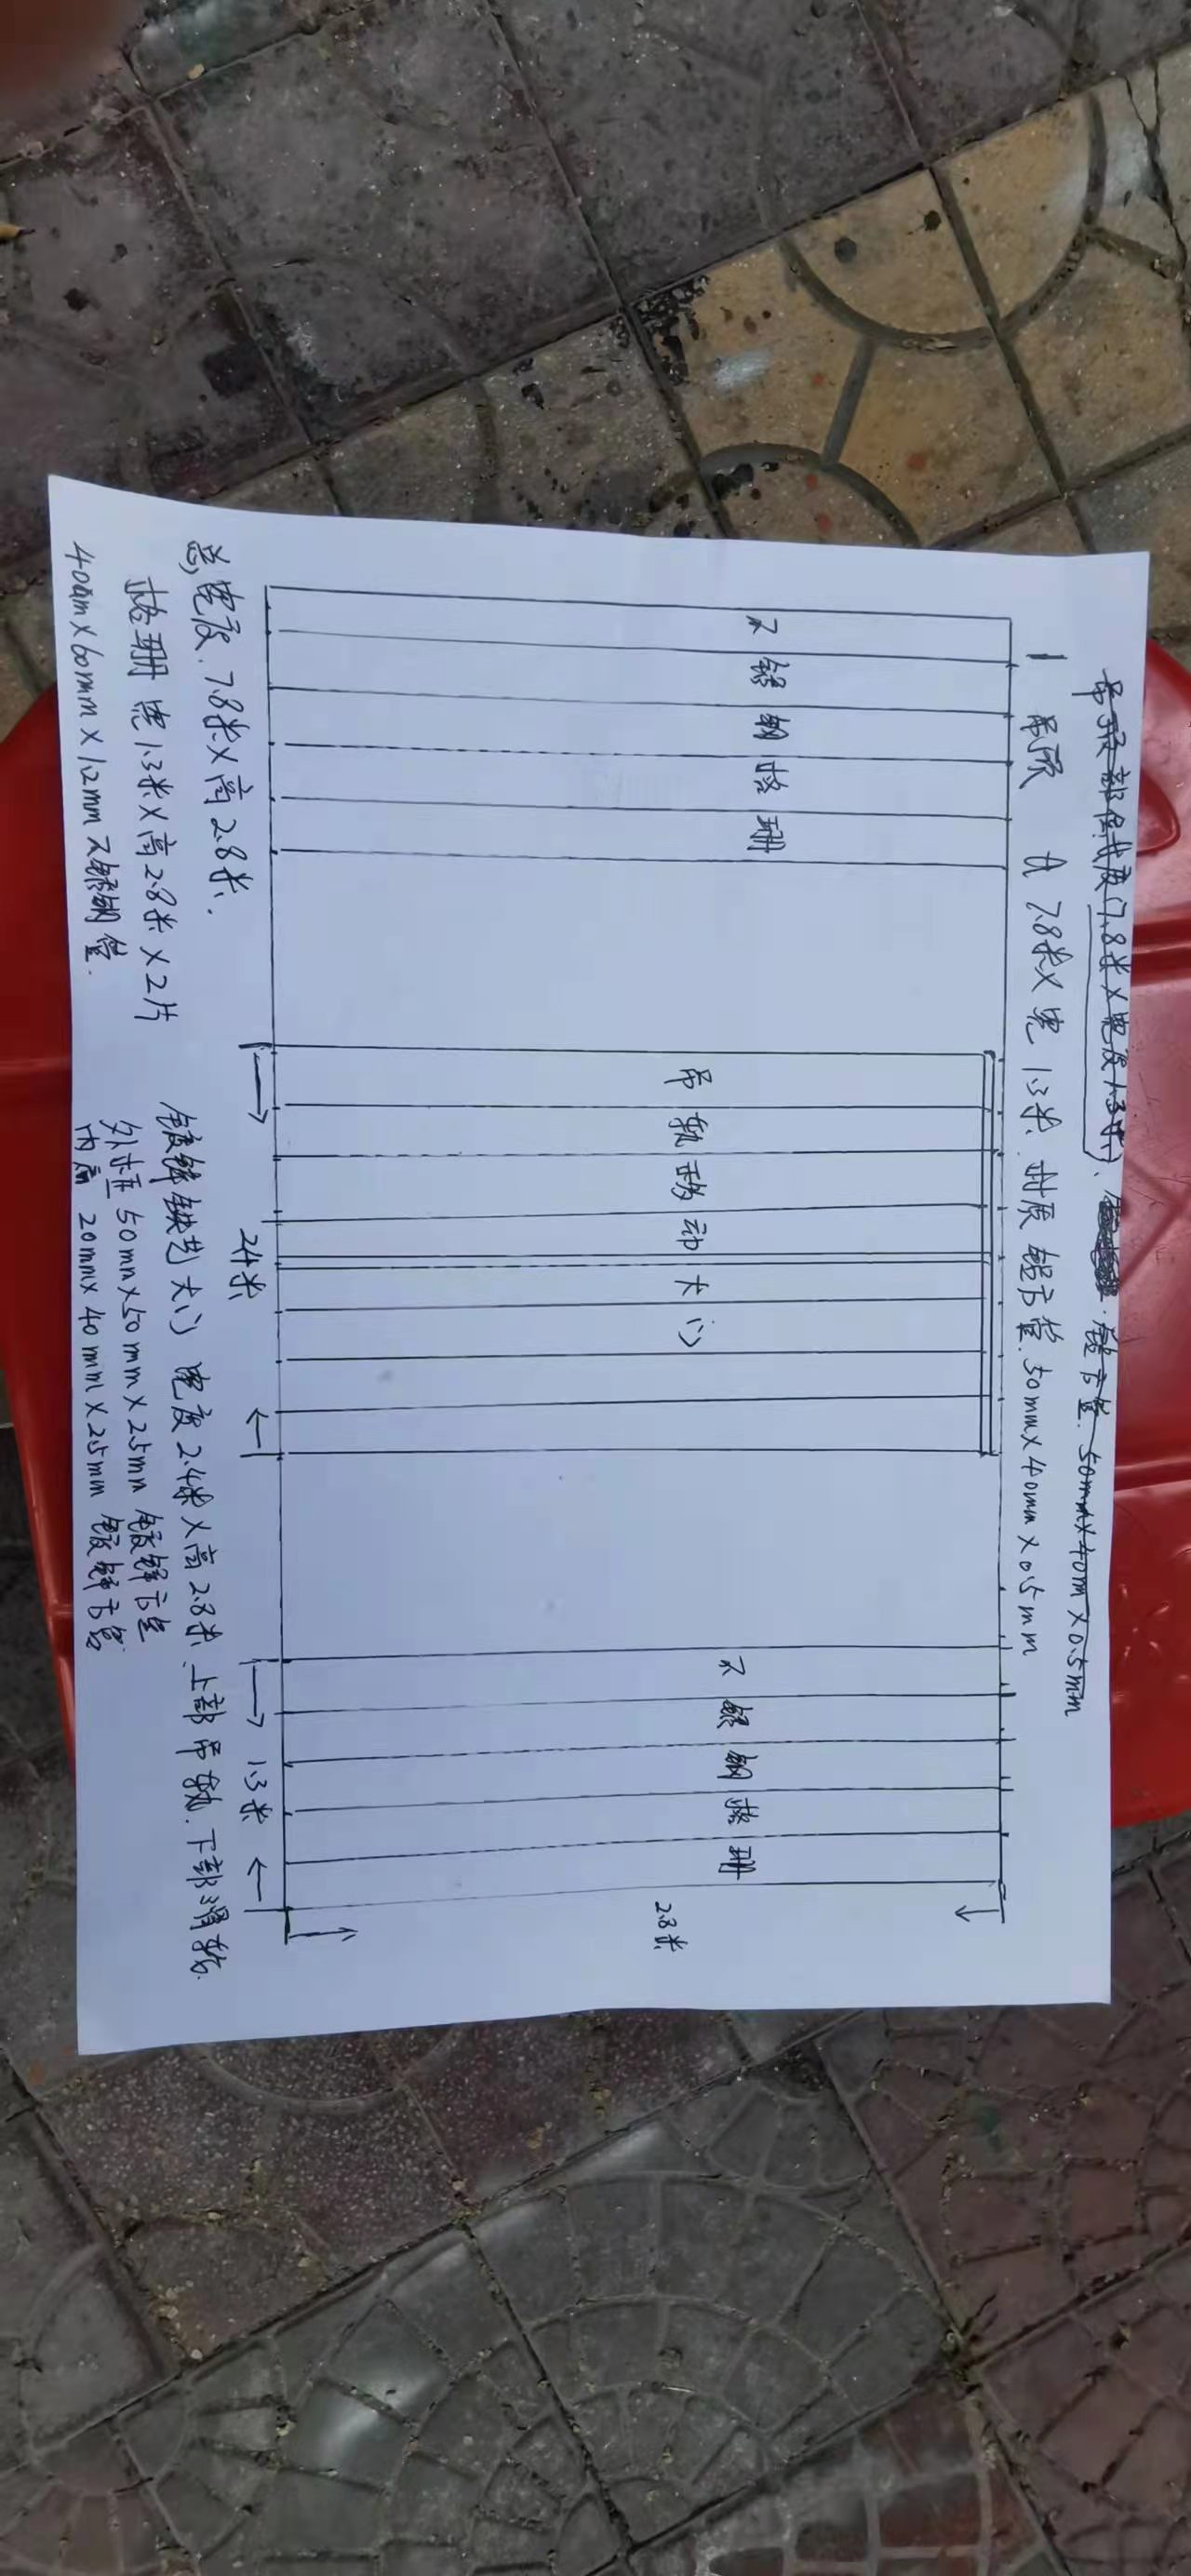 吊顶部位长度(7.8米×宽度1.3米)、铝方管 50mm×40m×0.5mm
1 吊顶 长7.8米×宽1.3米 材质 铝方管 50mm×40mm×0.5mm
不锈钢格珊
吊轨移动大门
不锈钢格珊
2.8米
2.4米
1.3米
总宽度 7.8米×高2.8米.
格珊 宽1.3米×高2.8米×2片
40mm×60mm×1.2mm不锈钢管.
镀锌铁艺大门 宽度2.4米×高2.8米 上部吊轨.下部滑轮.
外框 50mm×50mm×2.5mm 镀锌方管
20mm×40mm×2.5mm 镀锌方管